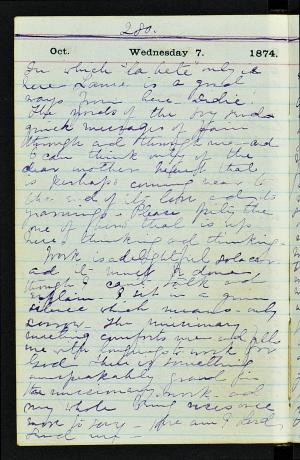 280.
Oct. Wednesday 7. 1874.
In which "la bête" only is
here. Lannie is a good
ways from here. Dudie.
The words of the boy send
quick messages of pain
through and through me - and
I can think only of the
dear mother heart that
is perhaps coming near to
the end of its love and its
yearnings - Please pity the
one of them that is up
here, thinking and thinking.
Work is a delightful solace
and it must be done
though I can't talk and
explain. I sit in a grim
silence which means only
sorrow. The missionary
meeting comforts me and fills
me with longings to work for
God. There is something
unspeakably grand in
the missionary work - and
my whole being rises once
more to say - Here am I Lord,
send me -